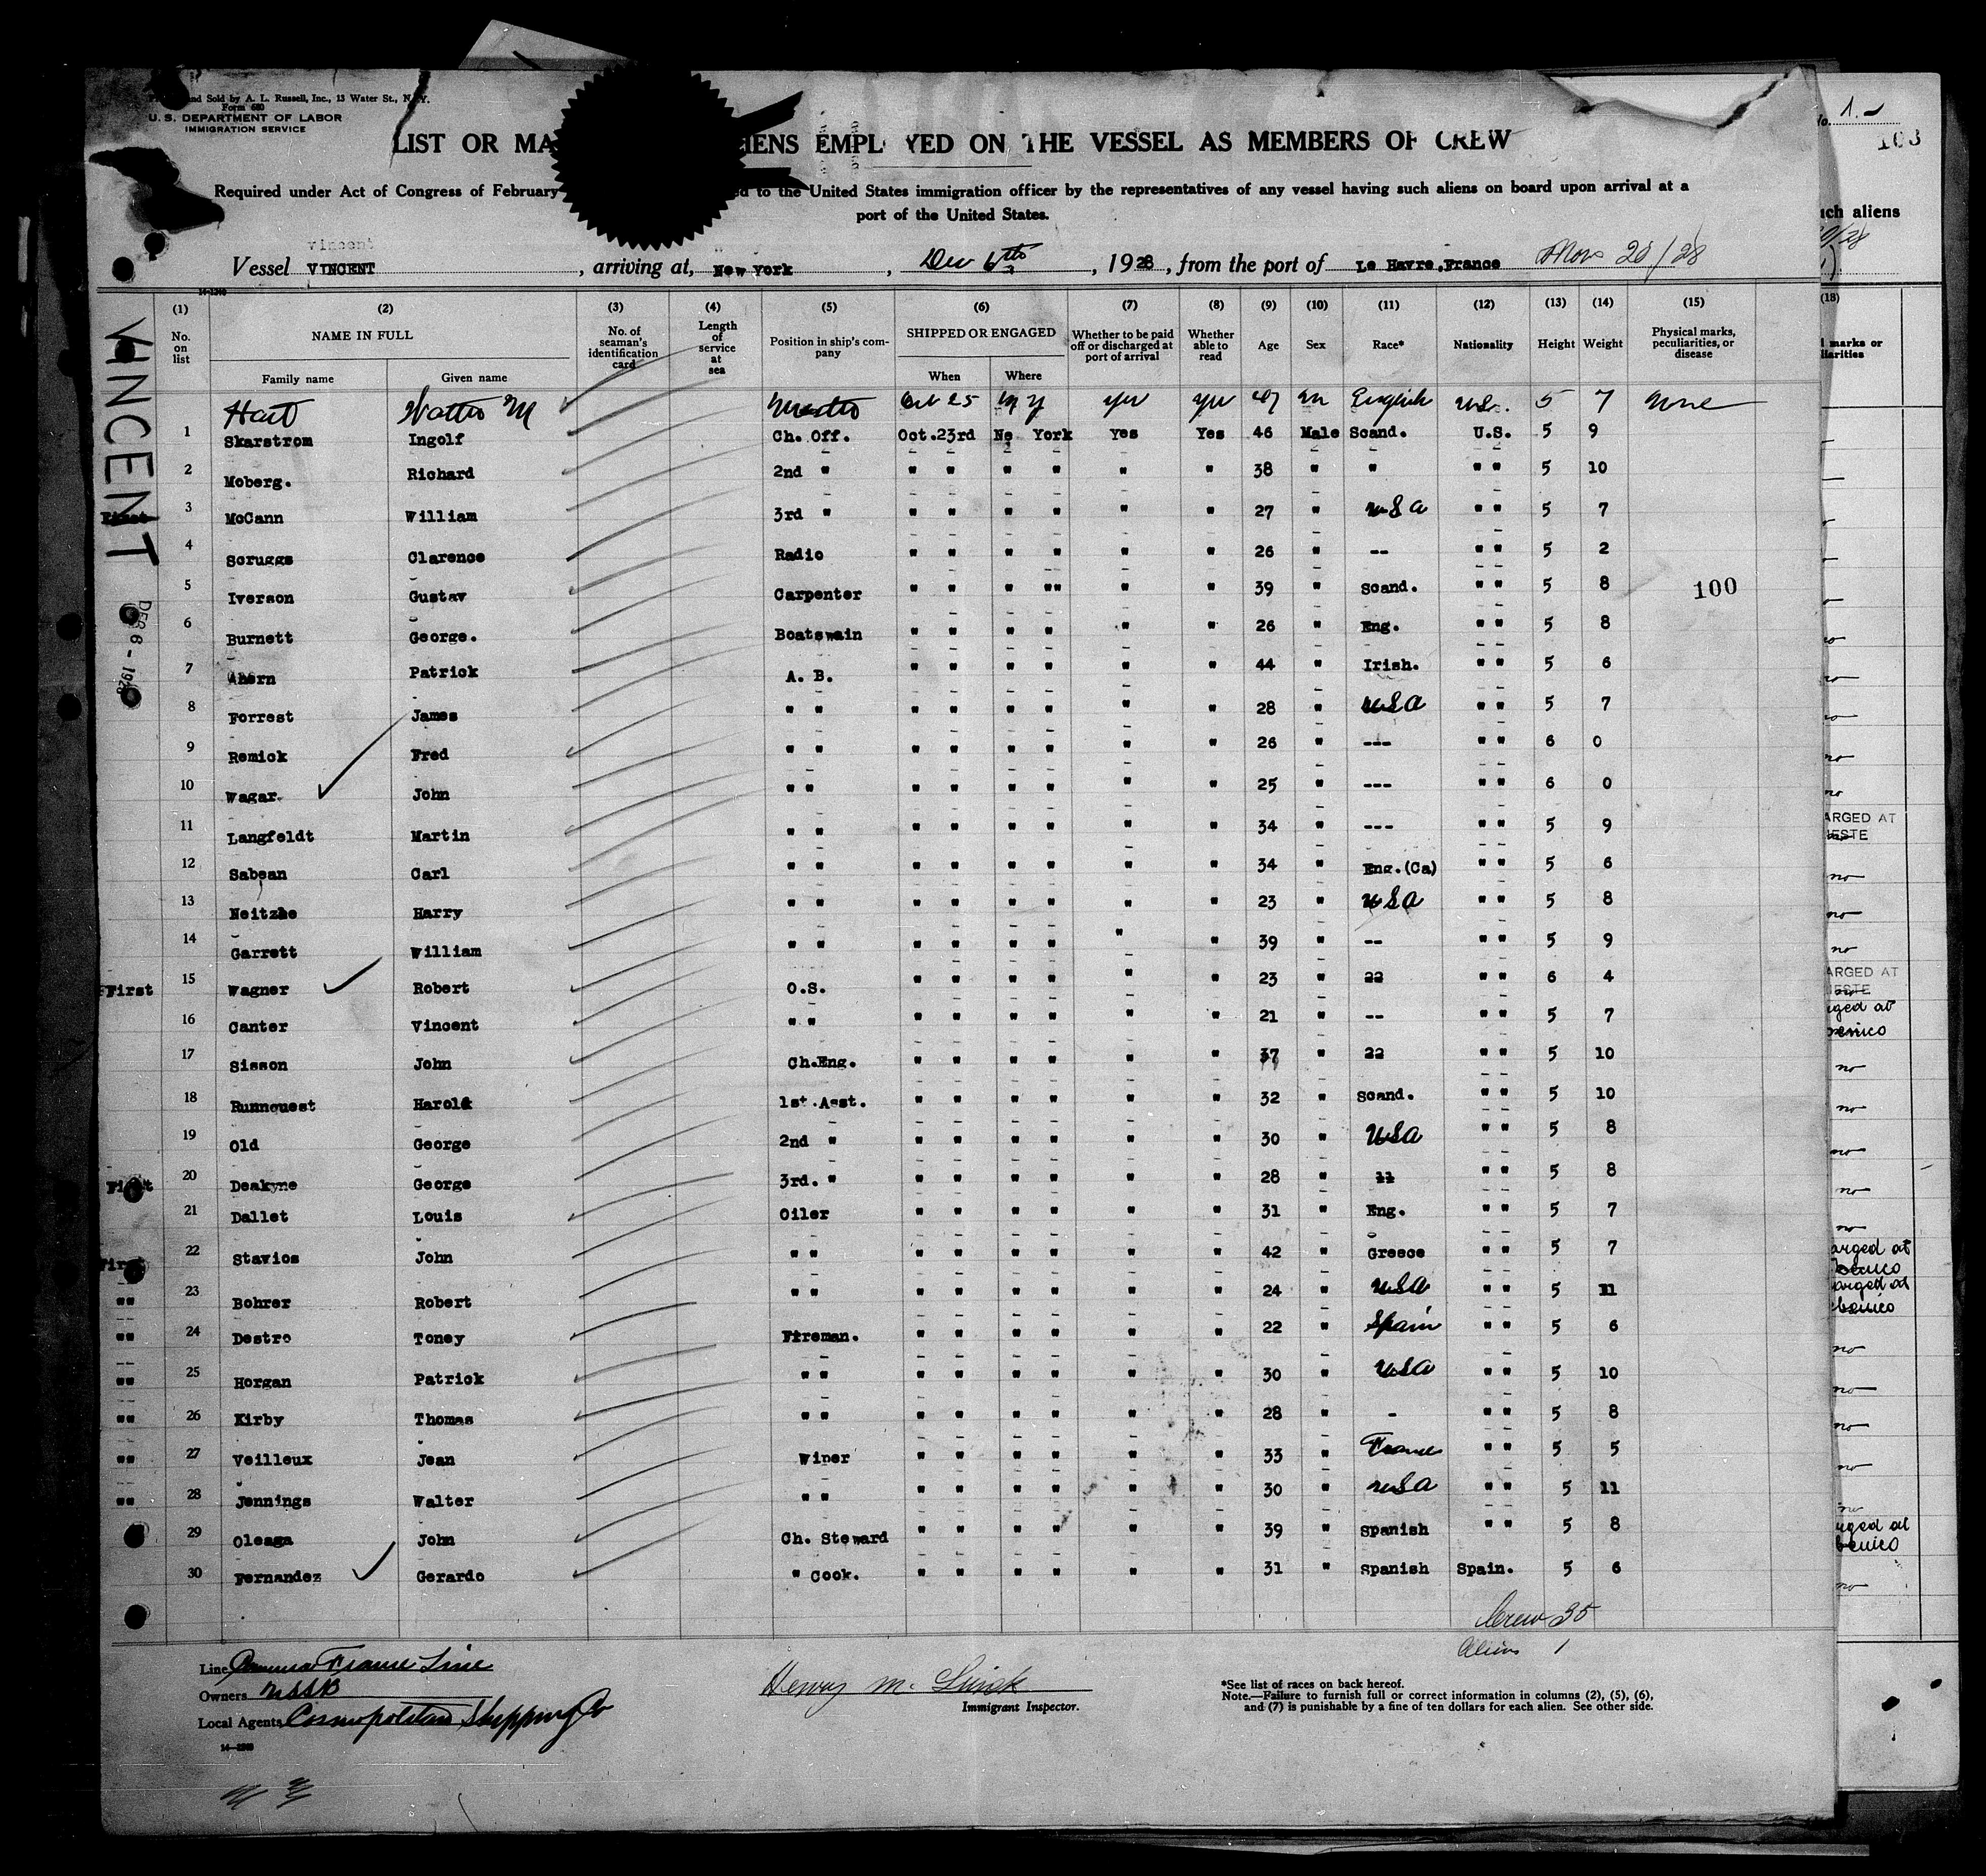 and Sold by A. L. Russell, Inc., 13 Water St., N.Y.
Form 680
U. S. DEPARTMENT OF LABOR
IMMIGRATION SERVICE
LIST OR MA IENS EMPL YED ON THE VESSEL AS MEMBERS OF CREW
Required under Act of Congress of February ed to the United States immigration officer by the representatives of any vessel having such aliens on board upon arrival at a
port of the United States.
vincent
Vessel VINCENT, arriving at, New York, Dec 6th, 1928, from the port of Le Havre, France Nov 20/28
(1) (2) (3) (4) (5) (6) (7) (8) (9) (10) (11) (12) (13) (14) (15)
No. on list NAME IN FULL No. of seaman's identification card Length of service at sea Position in ship's company SHIPPED OR ENGAGED Whether to be paid off or discharged at port of arrival Whether able to read Age Sex Race* Nationality Height Weight Physical marks, peculiarities, or disease
Family name Given name When Where
Hart M Master Oct 25 N Y Yes Yes M English U.S. 5 7 None
1 Skarstrom Ingolf Ch. Off. Oct.23rd Ne York Yes Yes 46 Male Scand. U.S. 5 9
2 Moberg. Richard 2nd " " " " " " " 38 " " " " 5 10
First 3 McCann William 3rd " " " " " " " 27 " USA " " 5 7
4 Scruggs Clarence Radio " " " " " " 26 " -- " " 5 2
5 Iverson Gustav Carpenter " " " "" " " 39 " Scand. " " 5 8 100
6 Burnett George. Boatswain " " " " " " 26 " Eng. " " 5 8
7 Ahern Patrick A. B. " " " " " " 44 " Irish. " " 5 6
8 Forrest James " " " " " " " " 28 " USA " " 5 7
9 Remick Fred " " " " " " " " 26 " --- " " 6 0
10 Wagar. John " " " " " " " " 25 " --- " " 6 0
11 Langfeldt Martin " " " " " " " " 34 " --- " " 5 9
12 Sabean Carl " " " " " " " " 34 " Eng.(Ca) " " 5 6
13 Neitzke Harry " " " " " " " " 23 " USA " " 5 8
14 Garrett William " " " " " " " " 39 " -- " " 5 9
First 15 Wagner Robert O.S. " " " " " " 23 " 22 " " 6 4
16 Canter Vincent " " " " " " " " 21 " -- " " 5 7
17 Sisson John Ch.Eng. " " " " " " 37 " 22 " " 5 10
18 Runnquest Harold 1st.Asst. " " " " " " 32 " Scand. " " 5 10
19 Old George 2nd " " " " " " " 30 " USA " " 5 8
First 20 Deakyne George 3rd. " " " " " " " 28 " 11 " " 5 8
21 Dallet Louis Oiler " " " " " " 31 " Eng. " " 5 7
First 22 Stavios John " " " " " " " " 42 " Greece " " 5 7
"" 23 Bohrer Robert " " " " " " " " 24 " USA " " 5 11
"" 24 Destro Toney Fireman. " " " " " " 22 " Spain " " 5 6
"" 25 Horgan Patrick " " " " " " " " 30 " USA " " 5 10
"" 26 Kirby Thomas " " " " " " " " 28 " - " " 5 8
"" 27 Veilleux Jean Wiper " " " " " " 33 " France " " 5 5
"" 28 Jennings Walter " " " " " " " " 30 " USA " " 5 11
29 Oleaga John Ch. Steward " " " " " " 39 " Spanish " " 5 8
30 Fernandez Gerardo " Cook. " " " " " " 31 " Spanish Spain. 5 6
Crew 35
Aliens 1
Line France Line
Owners USSB
Local Agents Cosmopolitan Shipping Co
Henry M.
Immigrant Inspector.
*See list of races on back hereof.
Note.—Failure to furnish full or correct information in columns (2), (5), (6),
and (7) is punishable by a fine of ten dollars for each alien. See other side.
14-1240
VINCENT
DEC 6 - 1928
No. 1.
103
uch aliens
(18)
l marks or
liarities
no
ARGED AT
IESTE
no
ARGED AT
IESTE
rged at
no
arged at
arged at
no
rged at
no